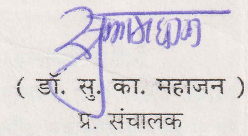 ( डॉ. सु. का. महाजन )
प्र. संचालक